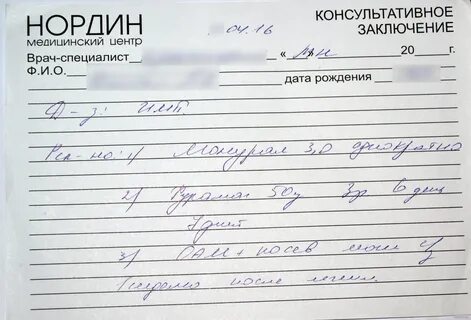 НОРДИН
МЕДИЦИНСКИЙ ЦЕНТР
КОНСУЛЬТАТИВНОЕ
ЗАКЛЮЧЕНИЕ
04.16
Врач-специалист « » 20 г.
Ф.И.О. дата рождения
Д-з: ИМП.
Рек-но: 1/ Монурал 3,0 однократно
2/ 50 3р. в день
7 дней
3/ ОАМ + посев мочи ч/з
1 неделю после лечен.